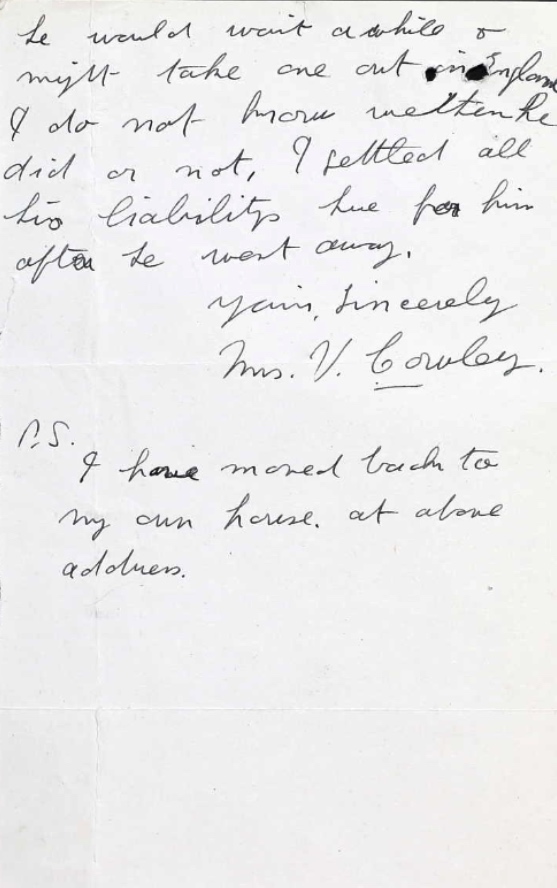 he would wait awhile &
might take one out in England
I do not know whether he
did or not, I settled all
his liability's here for him
after he went away.
Yours, Sincerely
Mrs. V. Cowley.
P.S.
I have moved back to
my own house. at above
address.